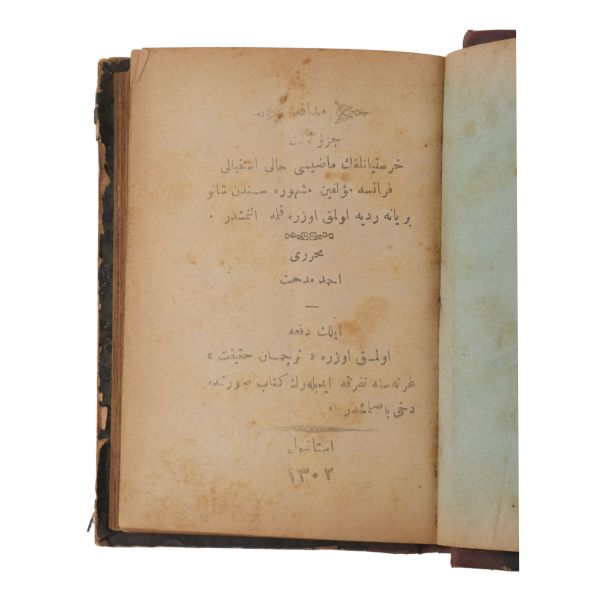 مدافعه
خرستیانلغك ماضیسی حالی استقبالی
فرانسه مؤلفین مشهوره سندن شاتو
بریانه ردیه اولمق اوزره قلمه النمشدر .
محرری
احمد مدحت
ایلك دفعه
اولمق اوزره « ترجمان حقیقت »
غزته سنه تفرقه ایدیله رك كتاب صورتنده
دخی باصلمشدر .
استانبول